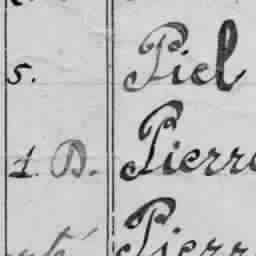 5. Piel
1. D. Pierre
Pierre